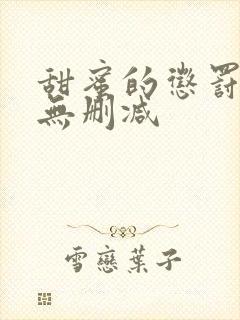 甜蜜的懲罰
無刪減
雪戀葉子